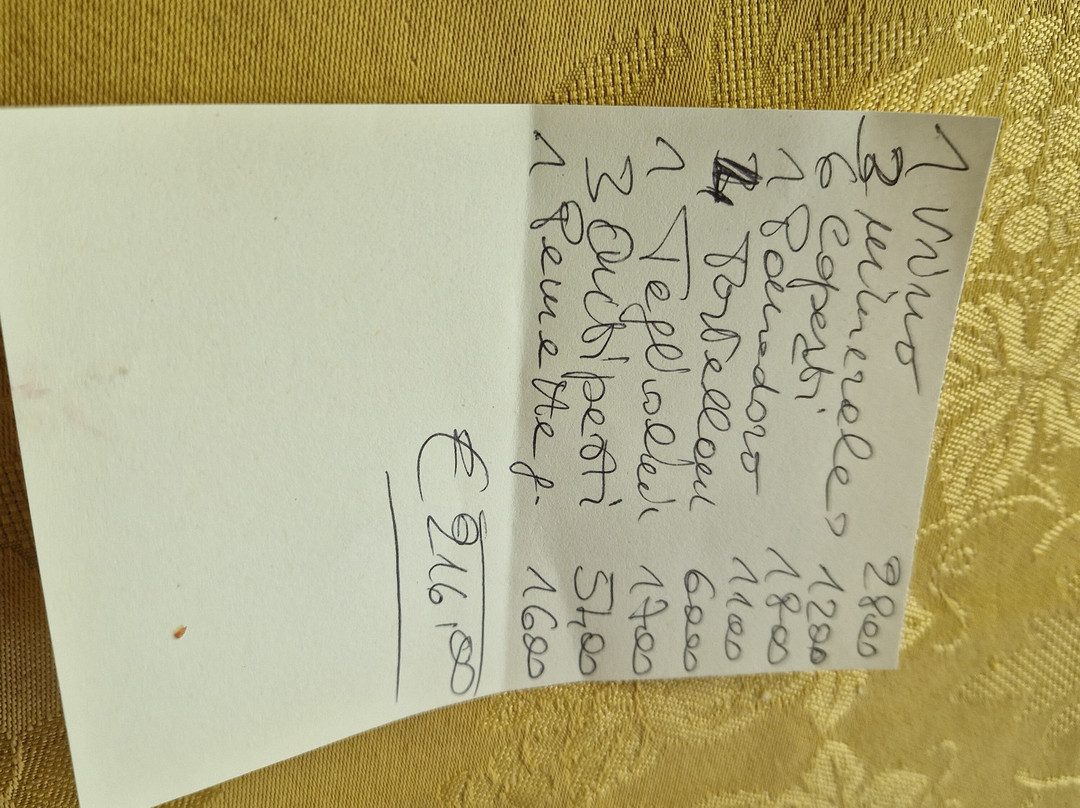 1 Vino 2800
3 minerale 1200
6 Coperti 1800
1 Pomodoro 1100
4 Tortelloni 6000
1 1700
3 Antipasti 51,00
1 1600
€ 216,00